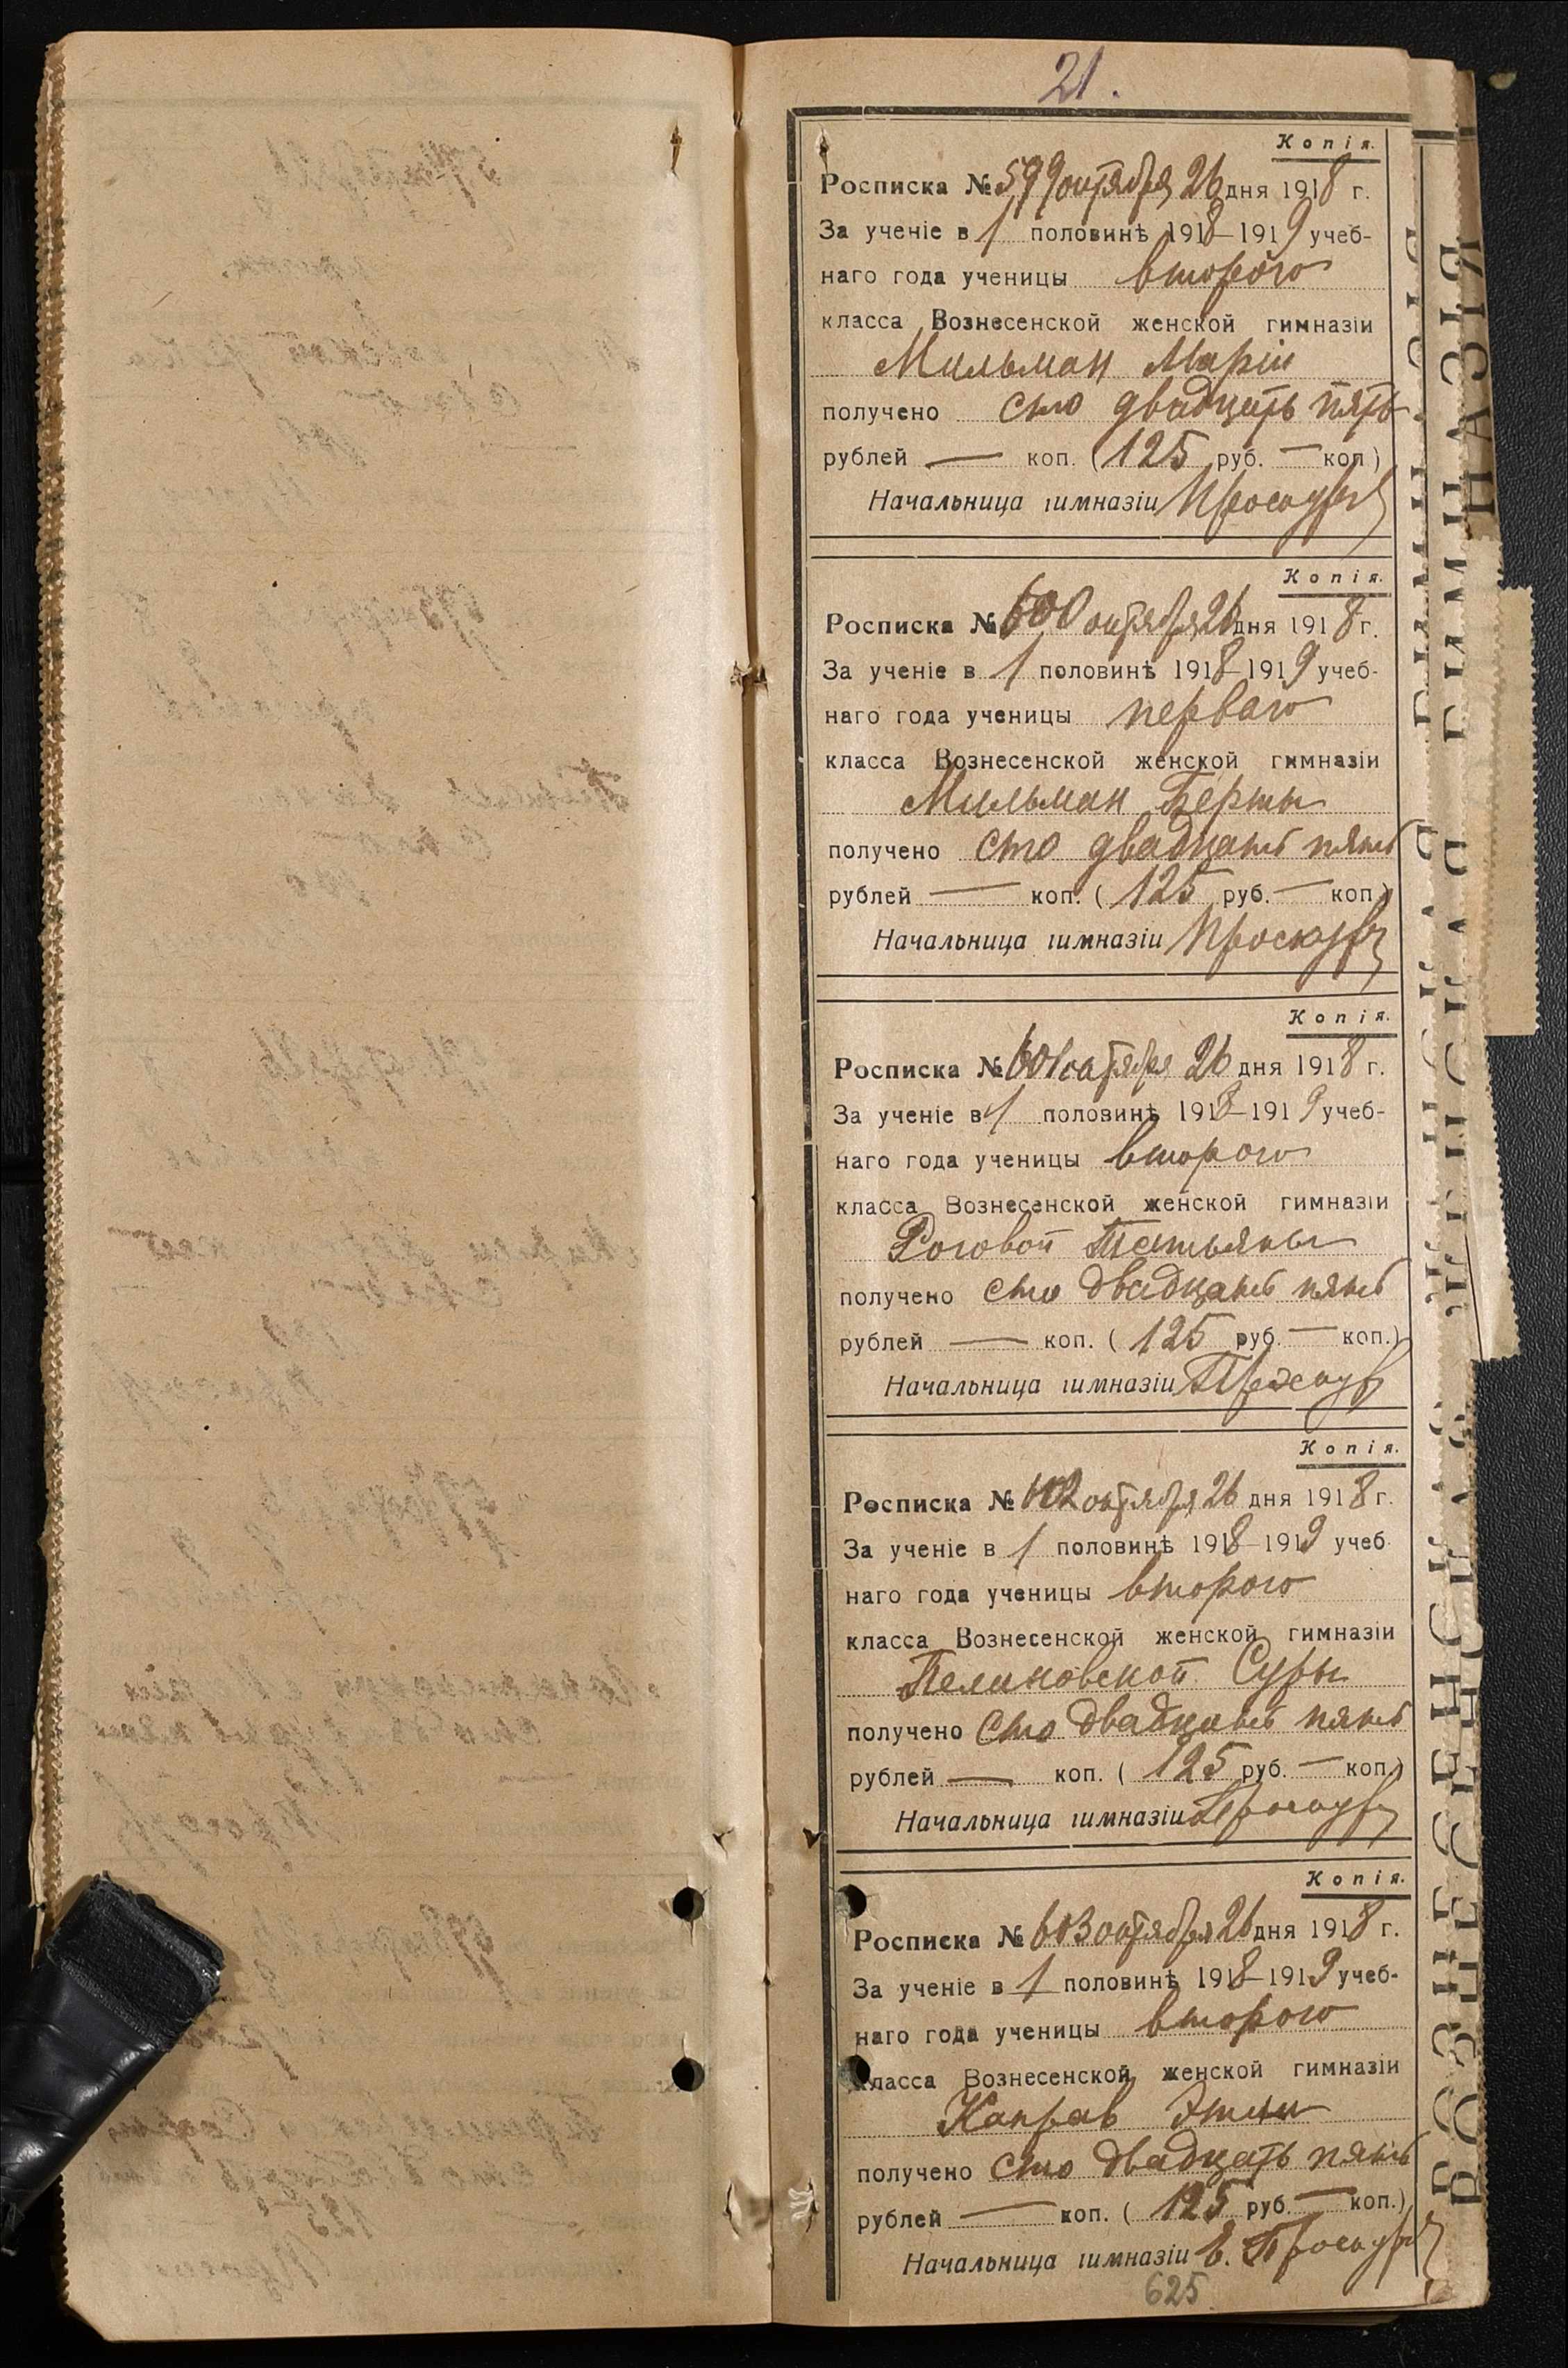 21.
Копія.
Росписка № 599 октября 26 дня 1918 г.
За ученіе в 1 половинѣ 1918–1919 учеб-
наго года ученицы второго
класса Вознесенской женской гимназіи
Мильман Маріи
получено сто двадцать пять
рублей — коп. (125 руб. — коп)
Начальница гимназіи Проскур
Копія.
Росписка № 600 октября 26 дня 1918 г.
За ученіе в 1 половинѣ 1918–1919 учеб-
наго года ученицы перваго
класса Вознесенской женской гимназіи
Мильман Берты
получено сто двадцать пять
рублей — коп. (125 руб. — коп.)
Начальница гимназіи Проскур
Копія.
Росписка № 601 октября 26 дня 1918 г.
За ученіе в 1 половинѣ 1918–1919 учеб-
наго года ученицы второго
класса Вознесенской женской гимназіи
Роговой Татьяны
получено сто двадцать пять
рублей — коп. (125 руб. — коп.)
Начальница гимназіи Проскур
Копія.
Росписка № 602 октября 26 дня 1918 г.
За ученіе в 1 половинѣ 1918–1919 учеб
наго года ученицы второго
класса Вознесенской женской гимназіи
Пелиновской Суры
получено сто двадцать пять
рублей — коп. (125 руб. — коп.)
Начальница гимназіи Проскур
Копія.
Росписка № 603 октября 26 дня 1918 г.
За ученіе в 1 половинѣ 1918–1919 учеб-
наго года ученицы второго
класса Вознесенской женской гимназіи
Каправ Этии
получено сто двадцать пять
рублей — коп. (125 руб. — коп.)
Начальница гимназіи Е. Проскур
625